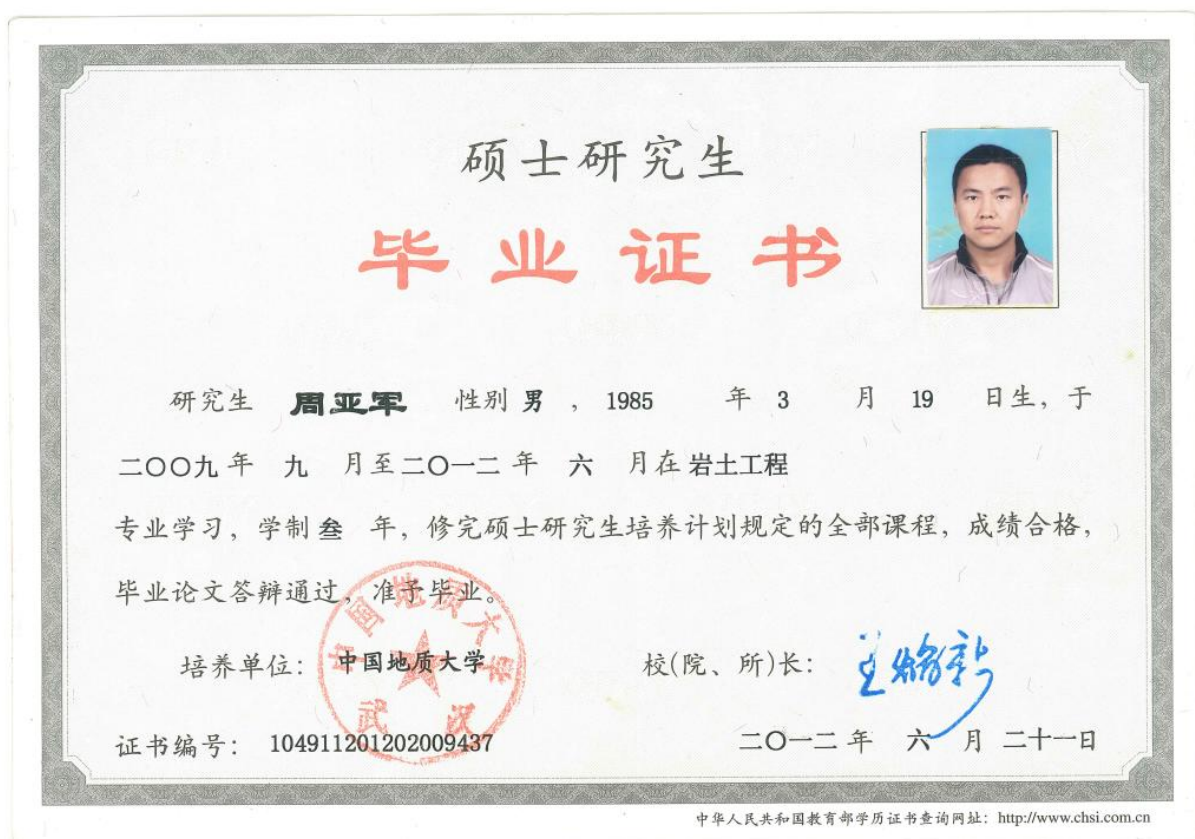 硕士研究生
毕业证书
研究生 周亚军 性别 男 , 1985 年 3 月 19 日生, 于
二〇〇九 年 九 月至 二〇一二 年 六 月在 岩土工程
专业学习, 学制 叁 年, 修完硕士研究生培养计划规定的全部课程, 成绩合格,
毕业论文答辩通过, 准予毕业。
中国地质大学
武汉
培养单位: 中国地质大学 校(院、所)长:
证书编号: 104911201202009437 二〇一二 年 六 月 二十一日
中华人民共和国教育部学历证书查询网址: http://www.chsi.com.cn